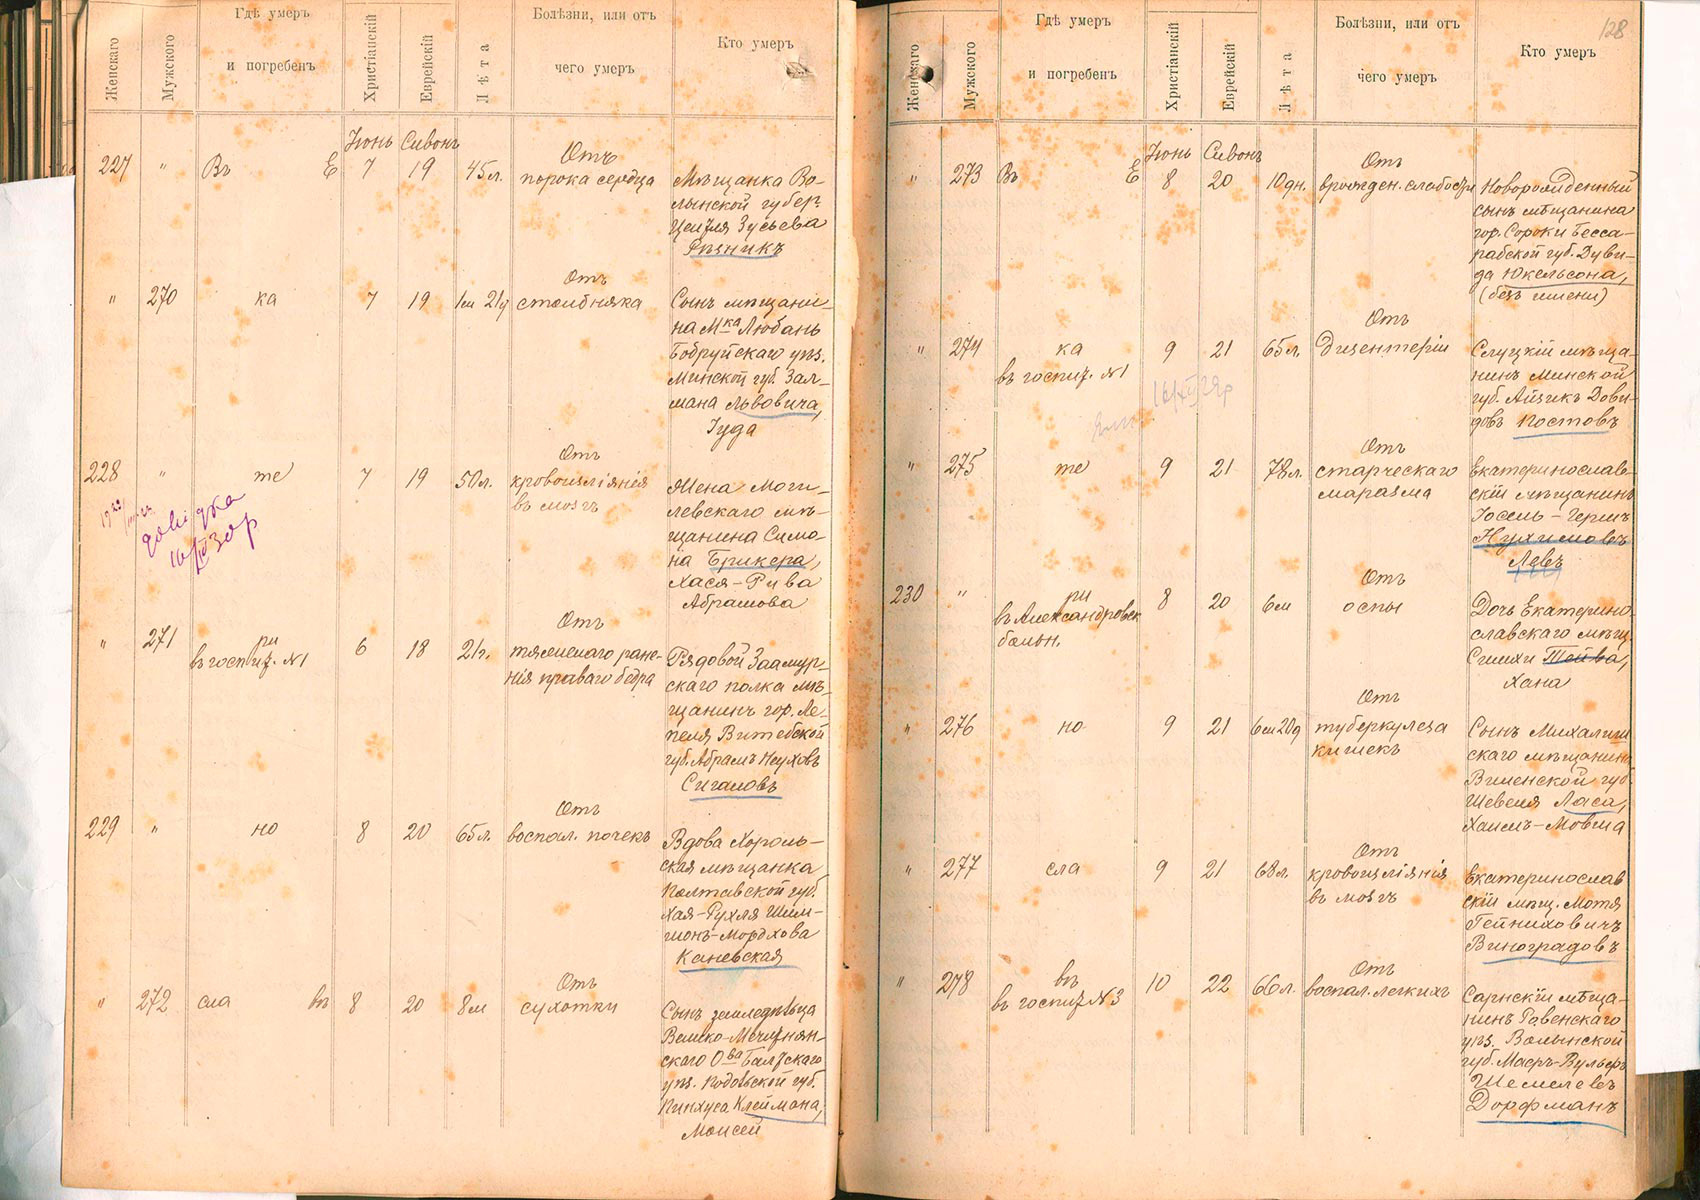 Женскаго
Мужского
Гдѣ умеръ
и погребенъ
Христіанскій
Еврейскій
Лѣта
Болѣзни, или отъ
чего умеръ
Кто умеръ
Іюнь Сивонъ
227 " Въ Е 7 19 45 л.
Отъ
порока сердца
Мѣщанка Во-
лынской губер.
Зусьева
Рѣзникъ
" 270 ка 7 19 1 м 21 д
Отъ
столбняка
Сынъ мѣщани
на Мка Любань
Бобруйскаго уѣз.
Минской губ. Зал-
мана Львовича,
Іуда
228 " те 7 19 50 л.
Отъ
кровоизліянія
въ мозгъ
Жена Моги-
левскаго мѣ-
щанина Симо-
на Брикера,
Хася-Рива
Абрамова
довідка
16/IV 30 р
" 271 ри
въ госпит. №1
6 18 21 г.
Отъ
тяжелаго ране-
нія праваго бедра
Рядовой Заамур-
скаго полка мѣ-
щанинъ гор. Ле-
пеля Витебской
губ. Абрамъ Неуховъ
Сигаловъ
229 " но 8 20 65 л.
Отъ
воспал. почекъ
Вдова Хороль-
ская мѣщанка
Полтавской губ.
Хая-Рухля Шим-
шонъ-Мордхова
Каневская
" 272 сла въ 8 20 8 м
Отъ
сухотки
Сынъ земледѣльца
Велико-Мечетнян-
скаго О-ва Балтскаго
уѣз. Подольской губ.
Пинхуса Клеймана,
Моисей
128
Женскаго
Мужского
Гдѣ умеръ
и погребенъ
Христіанскій
Еврейскій
Лѣта
Болѣзни, или отъ
чего умеръ
Кто умеръ
Іюнь Сивонъ
" 273 Въ Е 8 20 10 дн.
Отъ
врожден. слабости
Новорожденный
сынъ мѣщанина
гор. Сороки Бесса-
рабской губ. Дуви-
да Юкельсона,
(безъ имени)
" 274 ка
въ госпит. №1
9 21 65 л.
Отъ
дизентеріи
Слуцкій мѣща-
нинъ Минской
губ. Айзикъ Дови-
довъ Костовъ
16/XII 29 р
" 275 те 9 21 78 л.
Отъ
старческаго
маразма
Екатеринослав-
скій мѣщанинъ
Іосель-Гершъ
Нухимовъ
Левъ
230 " ри
въ Александровск
больн.
8 20 6 м
Отъ
оспы
Дочь Екатерино-
славскаго мѣщ.
Симхи Тейва,
Хана
" 276 но 9 21 6 м 20 д
Отъ
туберкулеза
кишекъ
Сынъ Михалиш
скаго мѣщанина
Виленской губ.
Шевеля Ласа,
Хаимъ-Мовша
" 277 сла 9 21 68 л.
Отъ
кровоизліянія
въ мозгъ
Екатеринослав
скій мѣщ. Мотя
Гейниховичъ
Виноградовъ
" 278 въ
въ госпит №3
10 22 66 л.
Отъ
воспал. легкихъ
Сарнскій мѣща-
нинъ Ровенскаго
уѣз. Волынской
губ. Маеръ-Вульфъ
Шемелевъ
Дорфманъ